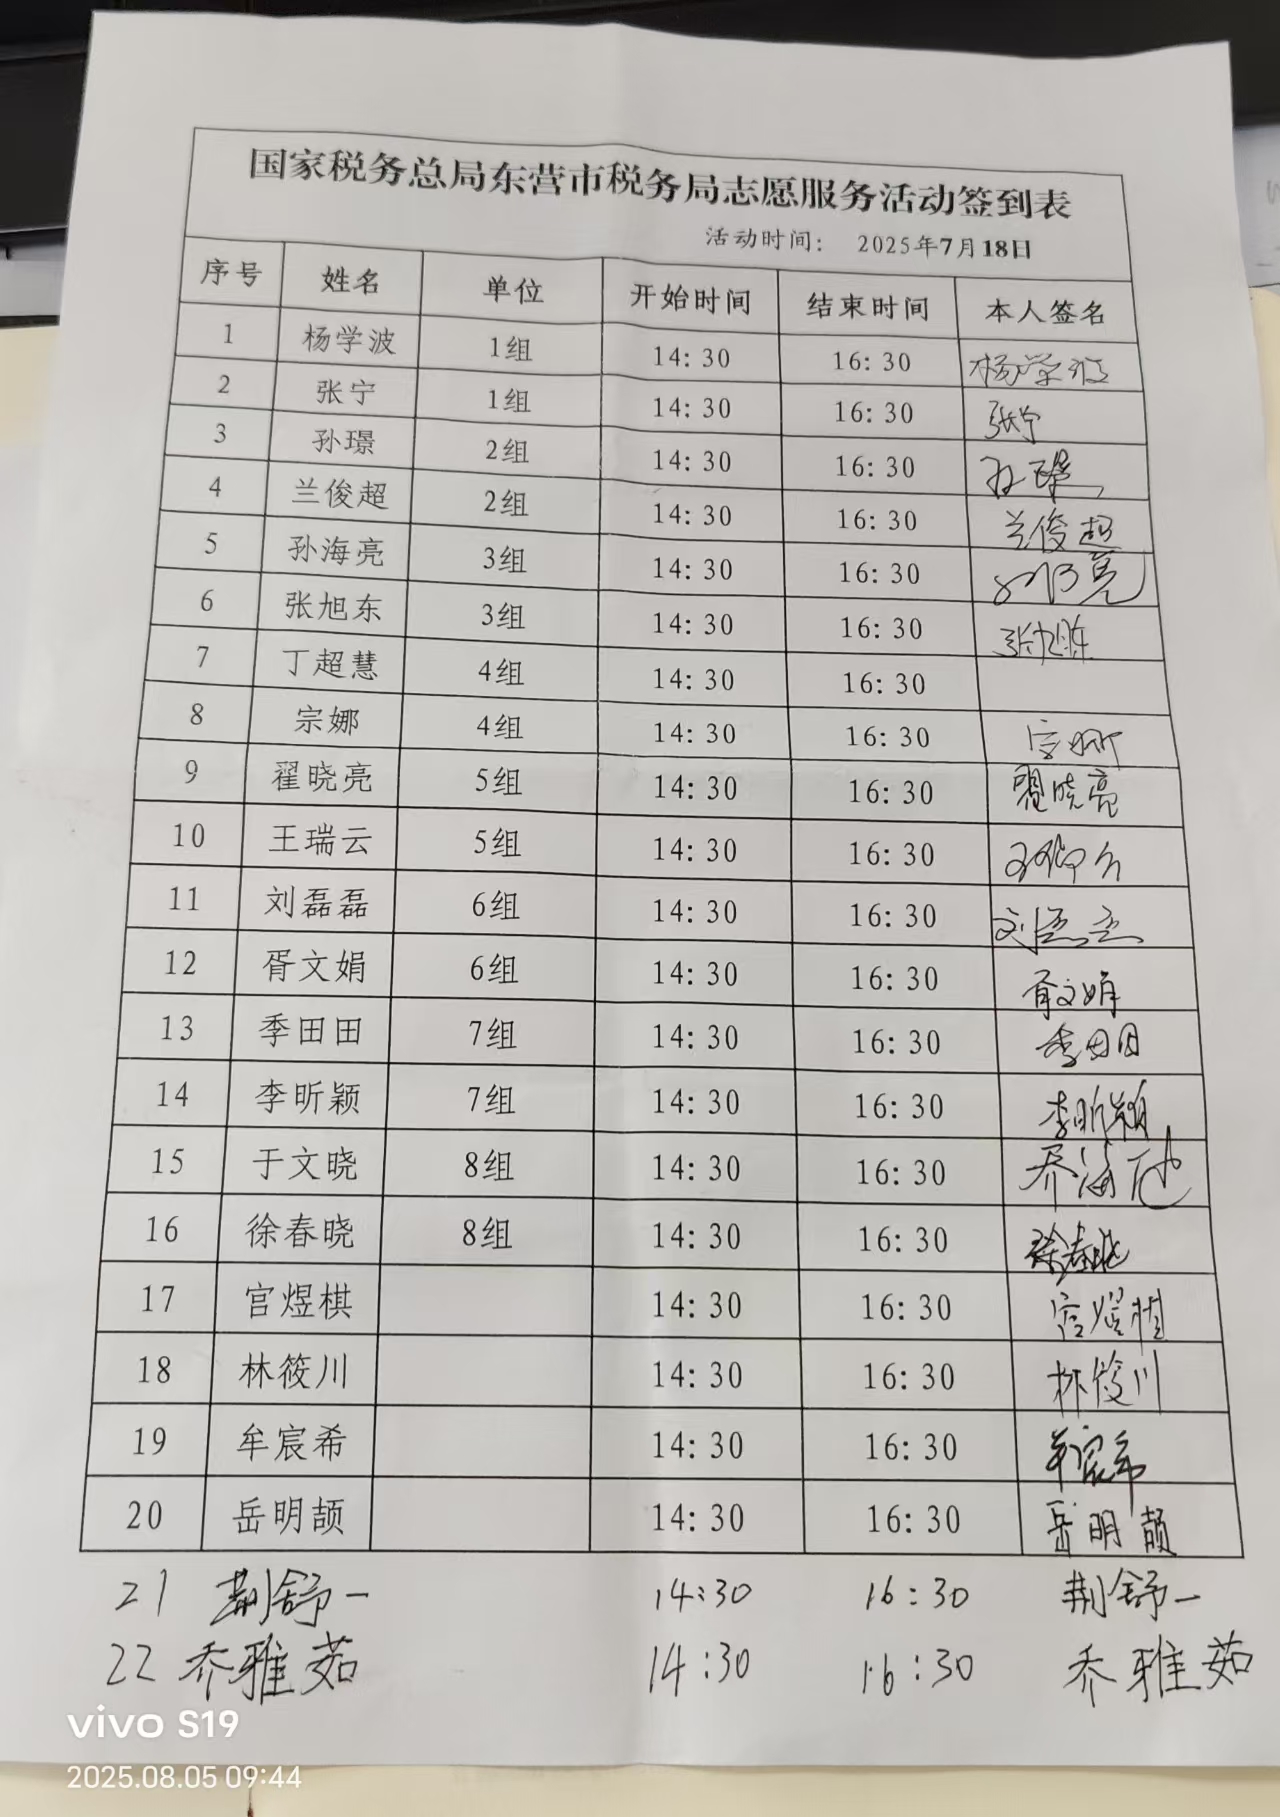 国家税务总局东营市税务局志愿服务活动签到表
活动时间： 2025年7月18日
序号 姓名 单位 开始时间 结束时间 本人签名
1 杨学波 1组 14:30 16:30 杨学波
2 张宁 1组 14:30 16:30 张宁
3 孙璟 2组 14:30 16:30 孙璟
4 兰俊超 2组 14:30 16:30 兰俊超
5 孙海亮 3组 14:30 16:30 孙海亮
6 张旭东 3组 14:30 16:30 张旭东
7 丁超慧 4组 14:30 16:30
8 宗娜 4组 14:30 16:30 宗娜
9 翟晓亮 5组 14:30 16:30 翟晓亮
10 王瑞云 5组 14:30 16:30 王瑞云
11 刘磊磊 6组 14:30 16:30 刘磊磊
12 胥文娟 6组 14:30 16:30 胥文娟
13 季田田 7组 14:30 16:30 季田田
14 李昕颖 7组 14:30 16:30 李昕颖
15 于文晓 8组 14:30 16:30 乔海
16 徐春晓 8组 14:30 16:30 徐春晓
17 官煜棋 14:30 16:30 官煜棋
18 林筱川 14:30 16:30 林筱川
19 牟宸希 14:30 16:30 牟宸希
20 岳明颉 14:30 16:30 岳明颉
21 荆舒一 14:30 16:30 荆舒一
22 乔雅茹 14:30 16:30 乔雅茹
vivo S19
2025.08.05 09:44